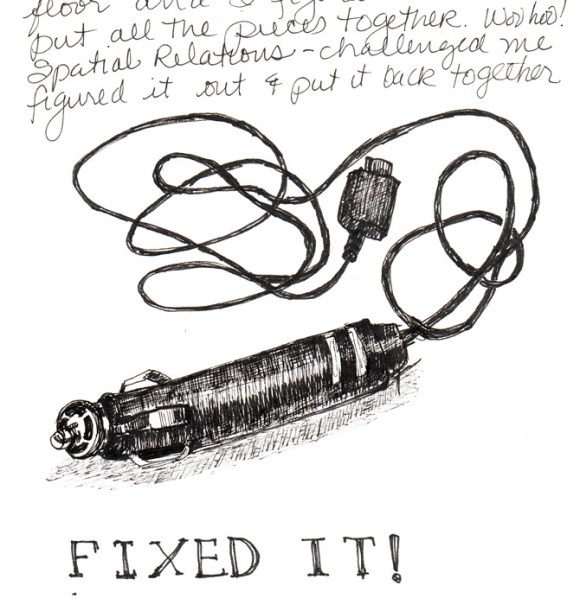 floor and I
put all the pieces together. Woohoo!
Spatial Relations - challenged me
figured it out & put it back together
FIXED IT!